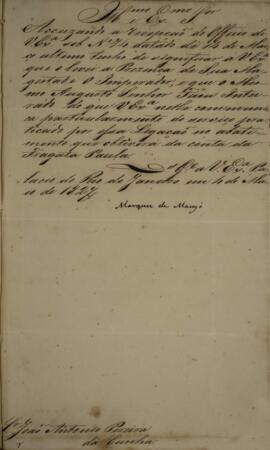 Illmo e Exmo Snr
Accuzando a recepção do Officio de
V. Exa sob No 71 datado de 14 de Março
ultimo tenho de significar a V. Exa
que o levei a Prezença de Sua Ma
gestade O Imperador, e que o Mes
mo Augusto Senhor Ficou Intei
rado do que V. Exa nelle communi
ca particularmente do serviço pra
ticado por essa Legação no abati
mento que obtivera da conta da
Fragata Paula.
Ds Ge a V. Exa Pa
lacio do Rio de Janeiro em 4 de Mai
o de 1827
Marquez de Maceyó
Sr João Antonio Pereira
da Cunha